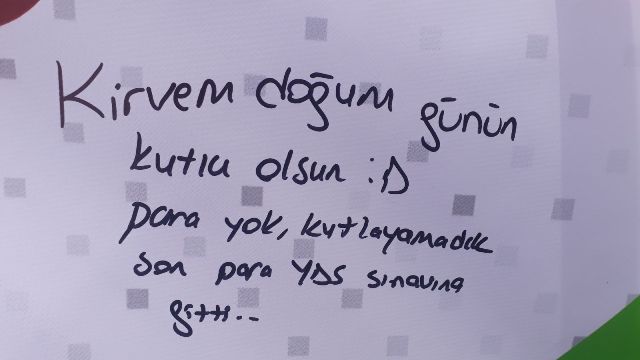 Kirvem doğum günün
kutlu olsun :D
para yok, kutlayamadık
son para YDS sınavına
gitti...